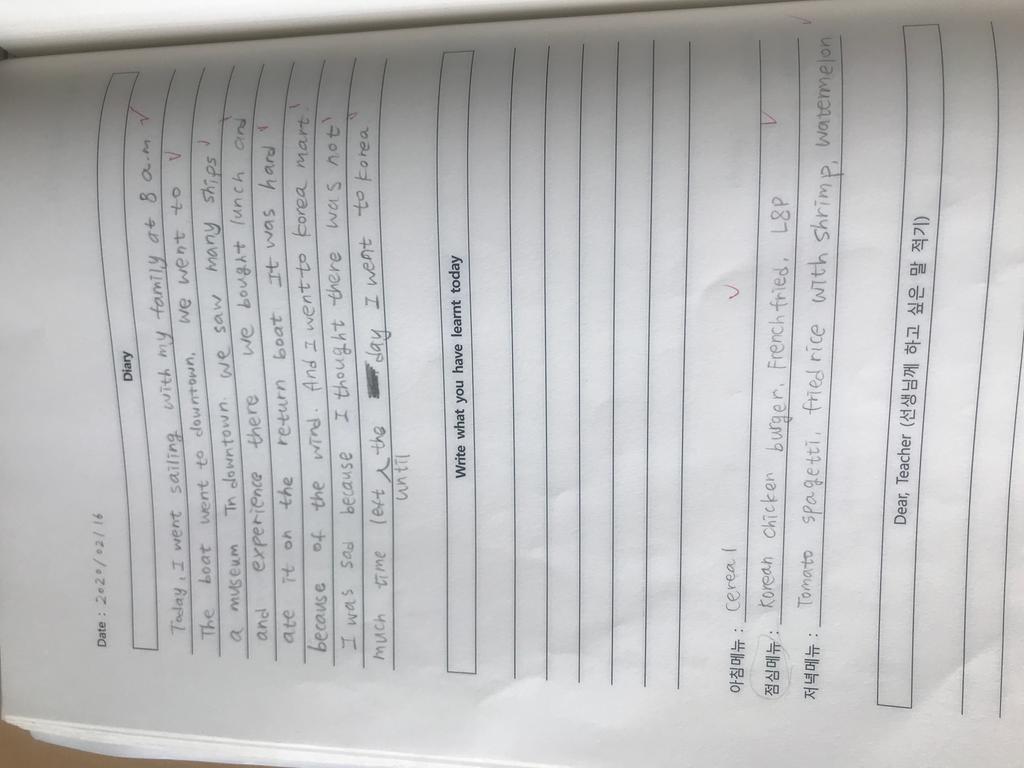 Date : 2020/02/16
Diary
Today, I went sailing with my family at 8 a.m
The boat went to downtown. we went to
a museum In downtown. We saw many ships
and experience there we bought lunch and
ate it on the return boat It was hard
because of the wind. And I went to korea mart.
I was sad because I thought there was not
much time left the day I went to korea
until
Write what you have learnt today
아침메뉴 : cereal
점심메뉴 : Korean chicken burger, French fried, L&P
저녁메뉴 : Tomato spagetti, fried rice with shrimp, watermelon
Dear, Teacher (선생님께 하고 싶은 말 적기)